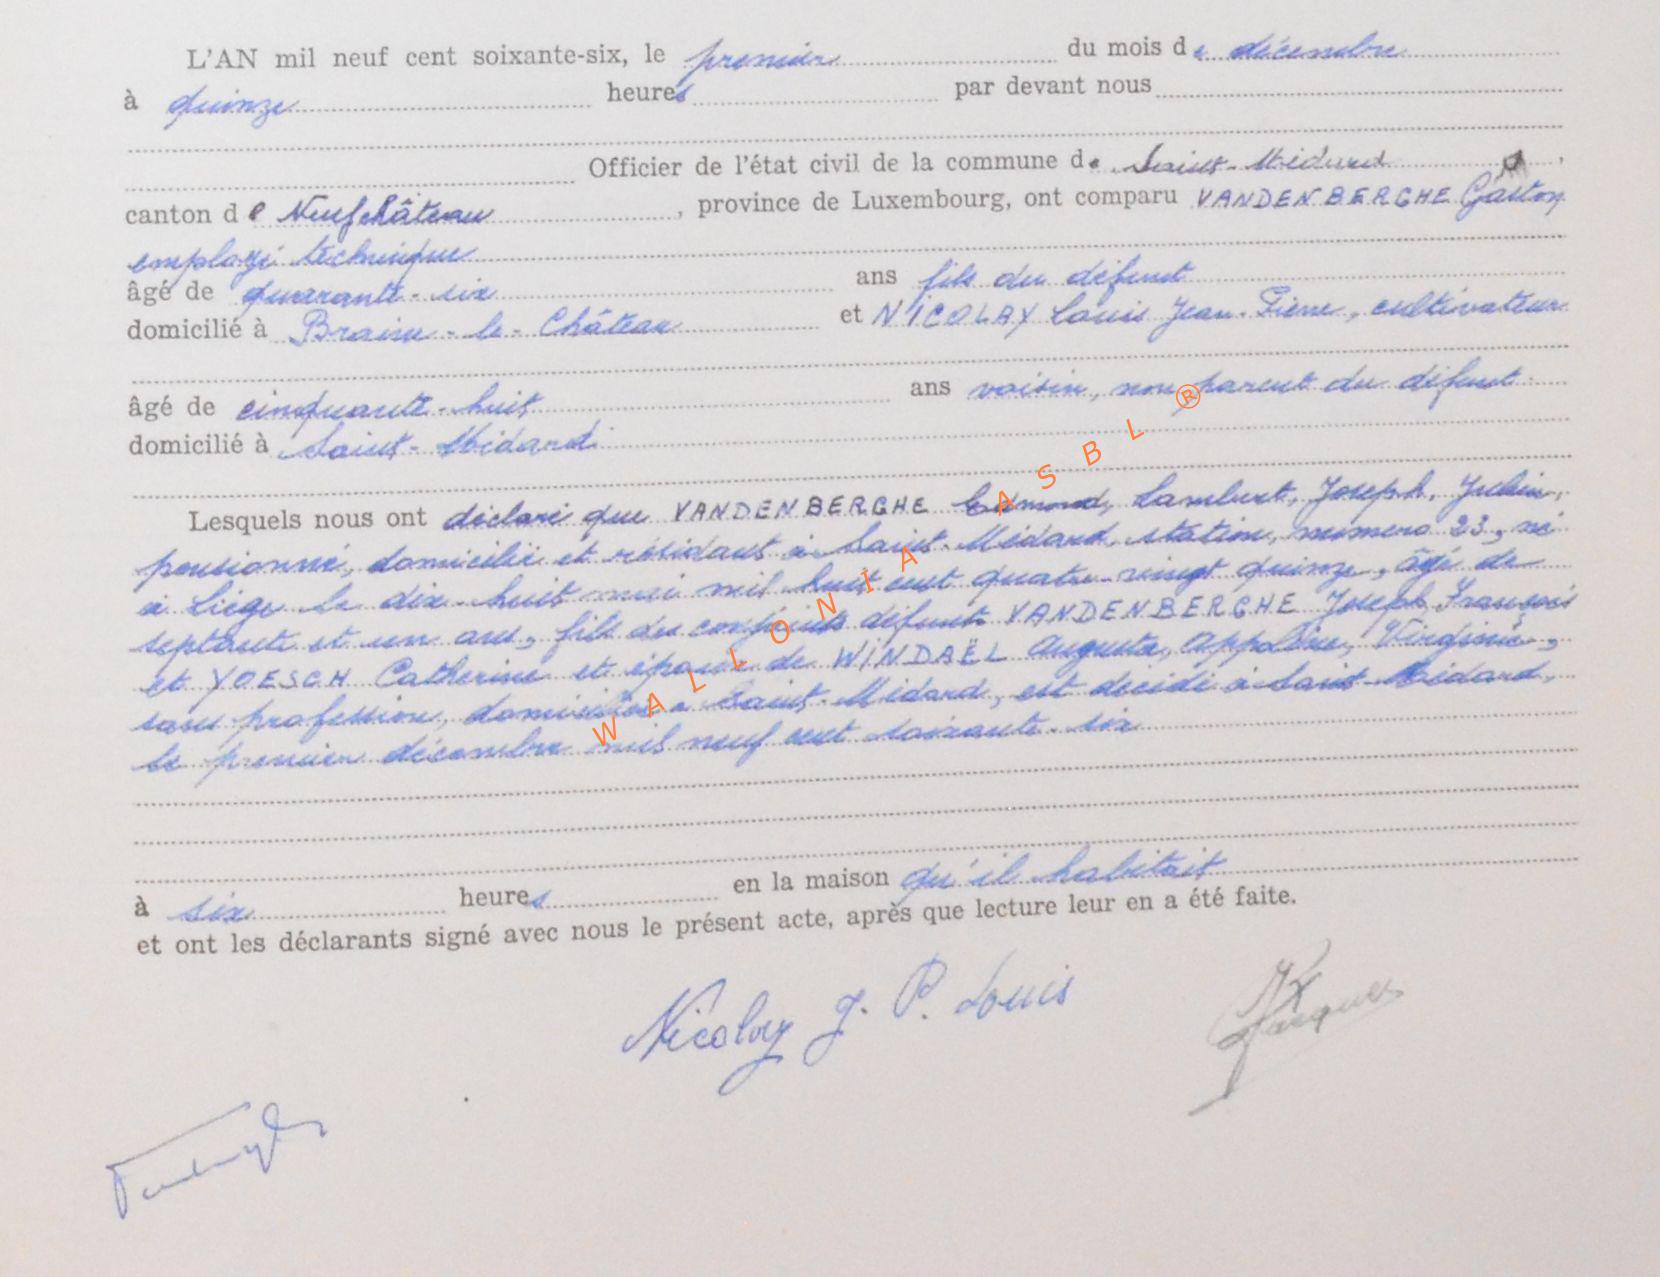 L'AN mil neuf cent soixante-six, le premier du mois de décembre
à quinze heures par devant nous
Officier de l'état civil de la commune de Saint-Médard,
canton de Neufchâteau, province de Luxembourg, ont comparu VANDENBERGHE Gaston
employé technique
âgé de quarante-six ans fils du défunt
domicilié à Braine-le-Château et NICOLAY Louis Jean-Pierre, cultivateur
âgé de cinquante-huit ans voisin, non parent du défunt
domicilié à Saint-Médard
Lesquels nous ont déclaré que VANDENBERGHE Edmond, Lambert, Joseph, Julien,
pensionné, domicilié et résidant à Saint-Médard, station, numéro 23, né
à Liège le dix-huit mai mil huit cent quatre-vingt quinze, âgé de
septante et un ans, fils des conjoints défunts VANDENBERGHE Joseph, François
et YOESCH Catherine et époux de WINDAËL Augusta, Appoline, Virginie,
sans profession, domiciliée à Saint-Médard, est décédé à Saint-Médard,
le premier décembre mil neuf cent soixante-six
à six heures en la maison qu'il habitait
et ont les déclarants signé avec nous le présent acte, après que lecture leur en a été faite.
Nicolay J. P. Louis
Jacques
WALLONIA ASBL ®